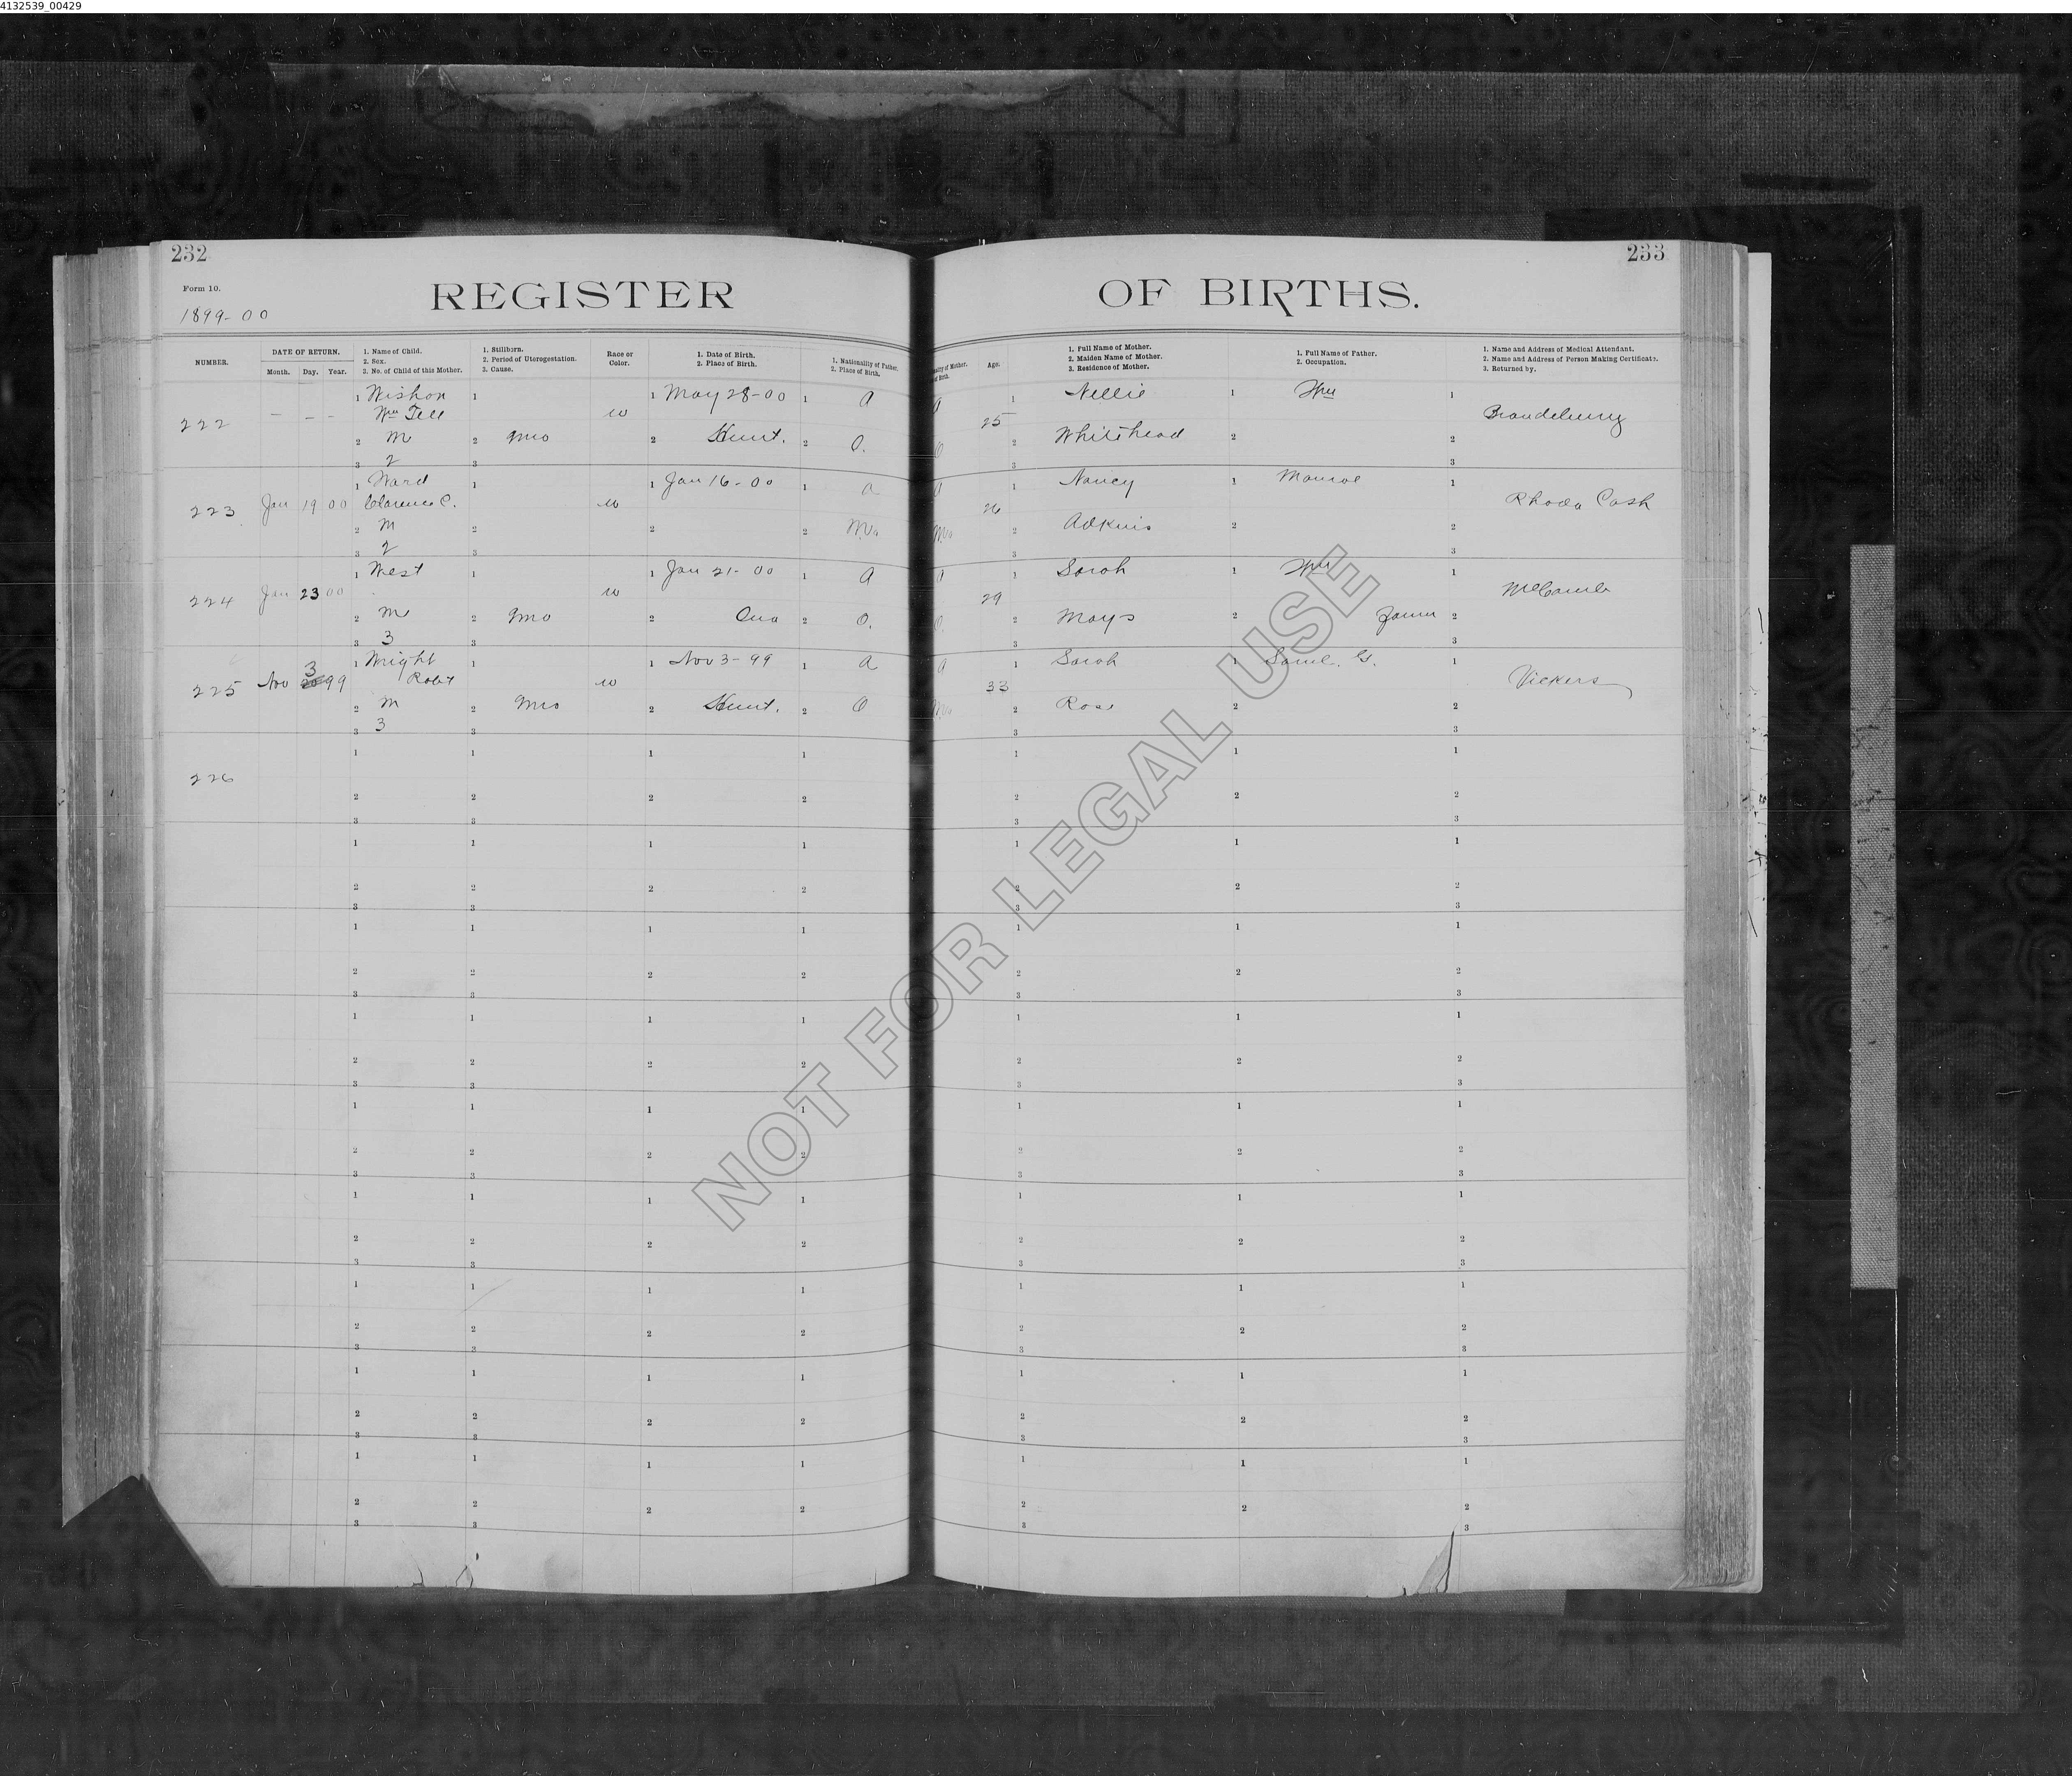 4132539_00429
232
233
Form 10.
REGISTER OF BIRTHS.
1899-00
NUMBER.
DATE OF RETURN.
Month. Day. Year.
1. Name of Child.
2. Sex.
3. No. of Child of this Mother.
1. Stillborn.
2. Period of Uterogestation.
3. Cause.
Race or
Color.
1. Date of Birth.
2. Place of Birth.
1. Nationality of Father.
2. Place of Birth.
Age.
1. Full Name of Mother.
2. Maiden Name of Mother.
3. Residence of Mother.
1. Full Name of Father.
2. Occupation.
1. Name and Address of Medical Attendant.
2. Name and Address of Person Making Certificate.
3. Returned by.
222 — — — 1 Wishon 1 w 1 May 28-00 1 A A 25 1 Nellie 1 Wm 1
Wm Tell Brandeberry
2 M 2 9mo 2 Hunt. 2 O. O 2 Whitehead 2 2
3 2 3 3 3
223 Jan 19 00 1 Ward 1 w 1 Jan 16-00 1 A A 26 1 Nancy 1 Monroe 1
Clarence C. Rhoda Cash
2 M 2 2 2 W.Va W.Va 2 Adkins 2 2
3 2 3 3 3
224 Jan 23 00 1 West 1 w 1 Jan 21-00 1 A A 29 1 Sarah 1 Wm 1
McComb
2 M 2 9mo 2 2 O. O. 2 Mays 2 2
3 3 3 3 3
225 Nov 3 99 1 Wright 1 w 1 Nov 3-99 1 A A 33 1 Sarah 1 Saml. G. 1
Robt Vickers
2 M 2 9mo 2 Hunt. 2 O 2 Rose 2 2
3 3 3 3 3
226
NOT FOR LEGAL USE